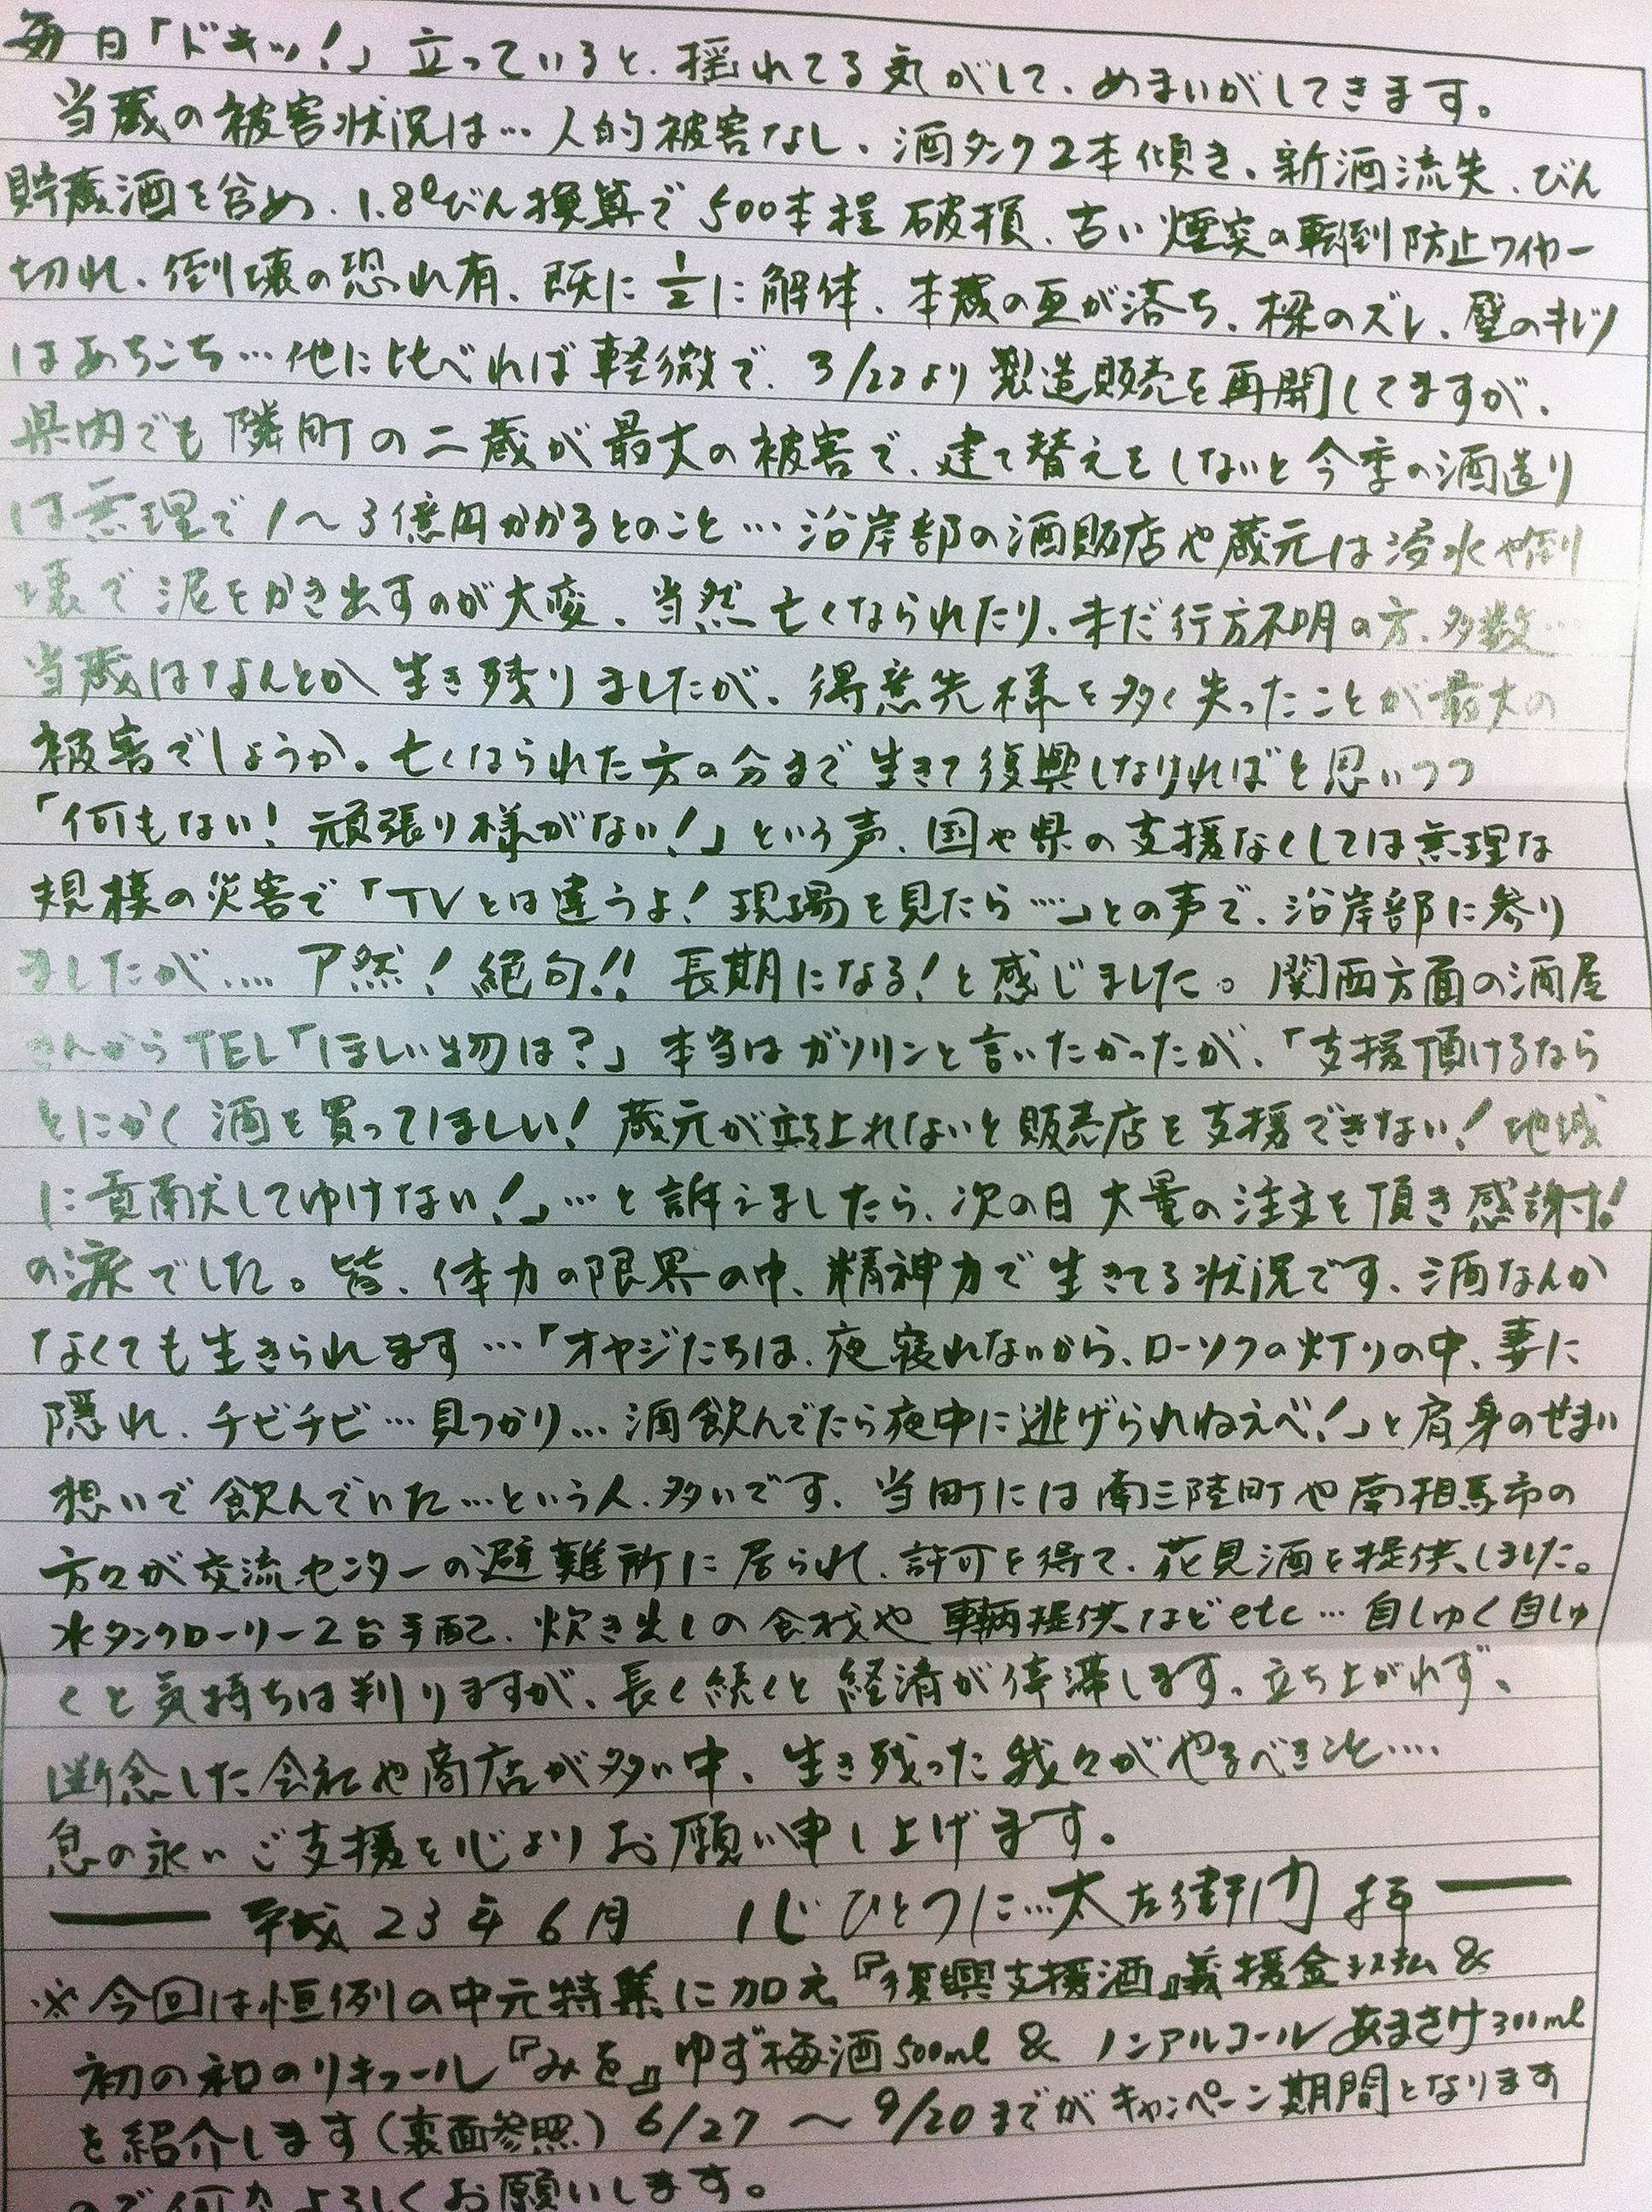 毎日「ドキッ!」立っていると、揺れてる気がして、めまいがしてきます。
当蔵の被害状況は…人的被害なし、酒タンク2本傾き、新酒流失、びん
貯蔵酒を含め、1.8ℓびん換算で500本程破損、古い煙突の転倒防止ワイヤー
切れ、倒壊の恐れ有、既に1/2に解体、本蔵の瓦が落ち、梁のズレ、壁のキレツ
はあちこち…他に比べれば軽微で、3/22より製造販売を再開してますが、
県内でも隣町の二蔵が最大の被害で、建て替えをしないと今季の酒造り
は無理で1～3億円かかるとのこと…沿岸部の酒販店や蔵元は浸水や倒
壊で泥をかき出すのが大変、当然亡くなられたり、未だ行方不明の方、多数…
当蔵はなんとか生き残りましたが、得意先様を多く失ったことが最大の
被害でしょうか。亡くなられた方の分まで生きて復興しなければと思いつつ
「何もない!頑張り様がない!」という声、国や県の支援なくしては無理な
規模の災害で「TVとは違うよ!現場を見たら…」との声で、沿岸部に参り
ましたが....ア然!絶句!!長期になる!と感じました。関西方面の酒屋
さんからTEL「ほしい物は?」本当はガソリンと言いたかったが、「支援頂けるなら
とにかく酒を買ってほしい!蔵元が立ち上れないと販売店を支援できない!地域
に貢献してゆけない!」…と訴えましたら、次の日大量の注文を頂き感謝!
の涙でした。皆、体力の限界の中、精神力で生きてる状況です、酒なんか
なくても生きられます…「オヤジたちは、夜寝れないから、ローソクの灯りの中、妻に
隠れ、チビチビ…見つかり…酒飲んでたら夜中に逃げられねえべ!」と肩身のせまい
想いで飲んでいた…という人、多いです、当町には南三陸町や南相馬市の
方々が交流センターの避難所に居られ、許可を得て、花見酒を提供しました。
水タンクローリー2台手配、炊き出しの食材や車輌提供などetc…自しゅく自しゅ
くと気持ちは判りますが、長く続くと経済が停滞します、立ち上がれず、
断念した会社や商店が多い中、生き残った我々がやるべきこと....
息の永いご支援を心よりお願い申し上げます。
平成23年6月 心ひとつに…太左衛門 拝
※今回は恒例の中元特集に加え『復興支援酒』義援金システム&
初の和のリキュール『みを』ゆず梅酒500ml & ノンアルコールあまさけ300ml
を紹介します(裏面参照)6/27～9/20までがキャンペーン期間となります
ので何卒よろしくお願いします。